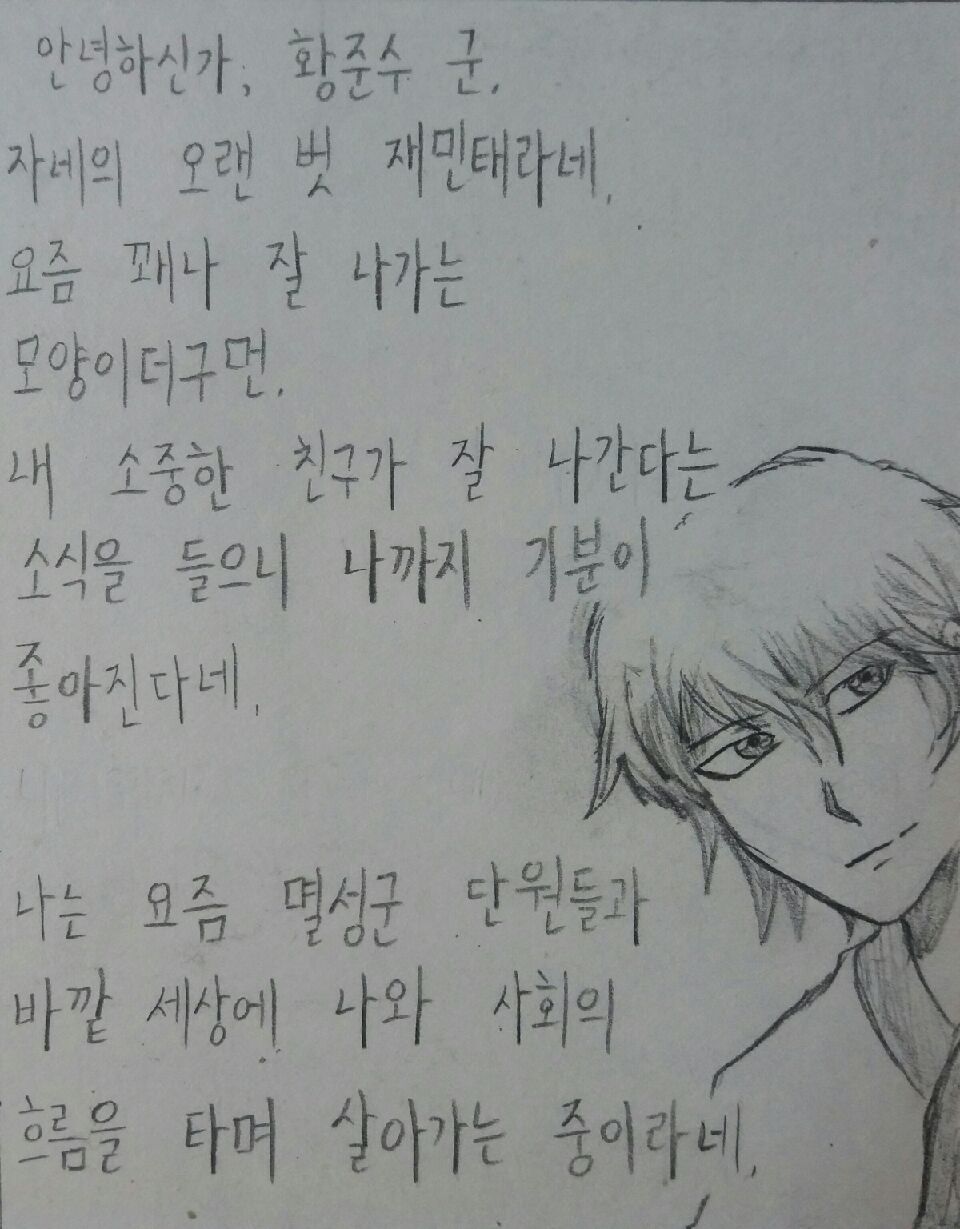 안녕하신가, 황준수 군.
자네의 오랜 벗 재민태라네.
요즘 꽤나 잘 나가는
모양이더구먼.
내 소중한 친구가 잘 나간다는
소식을 들으니 나까지 기분이
좋아진다네.
나는 요즘 멸성군 단원들과
바깥 세상에 나와 사회의
흐름을 타며 살아가는 중이라네.